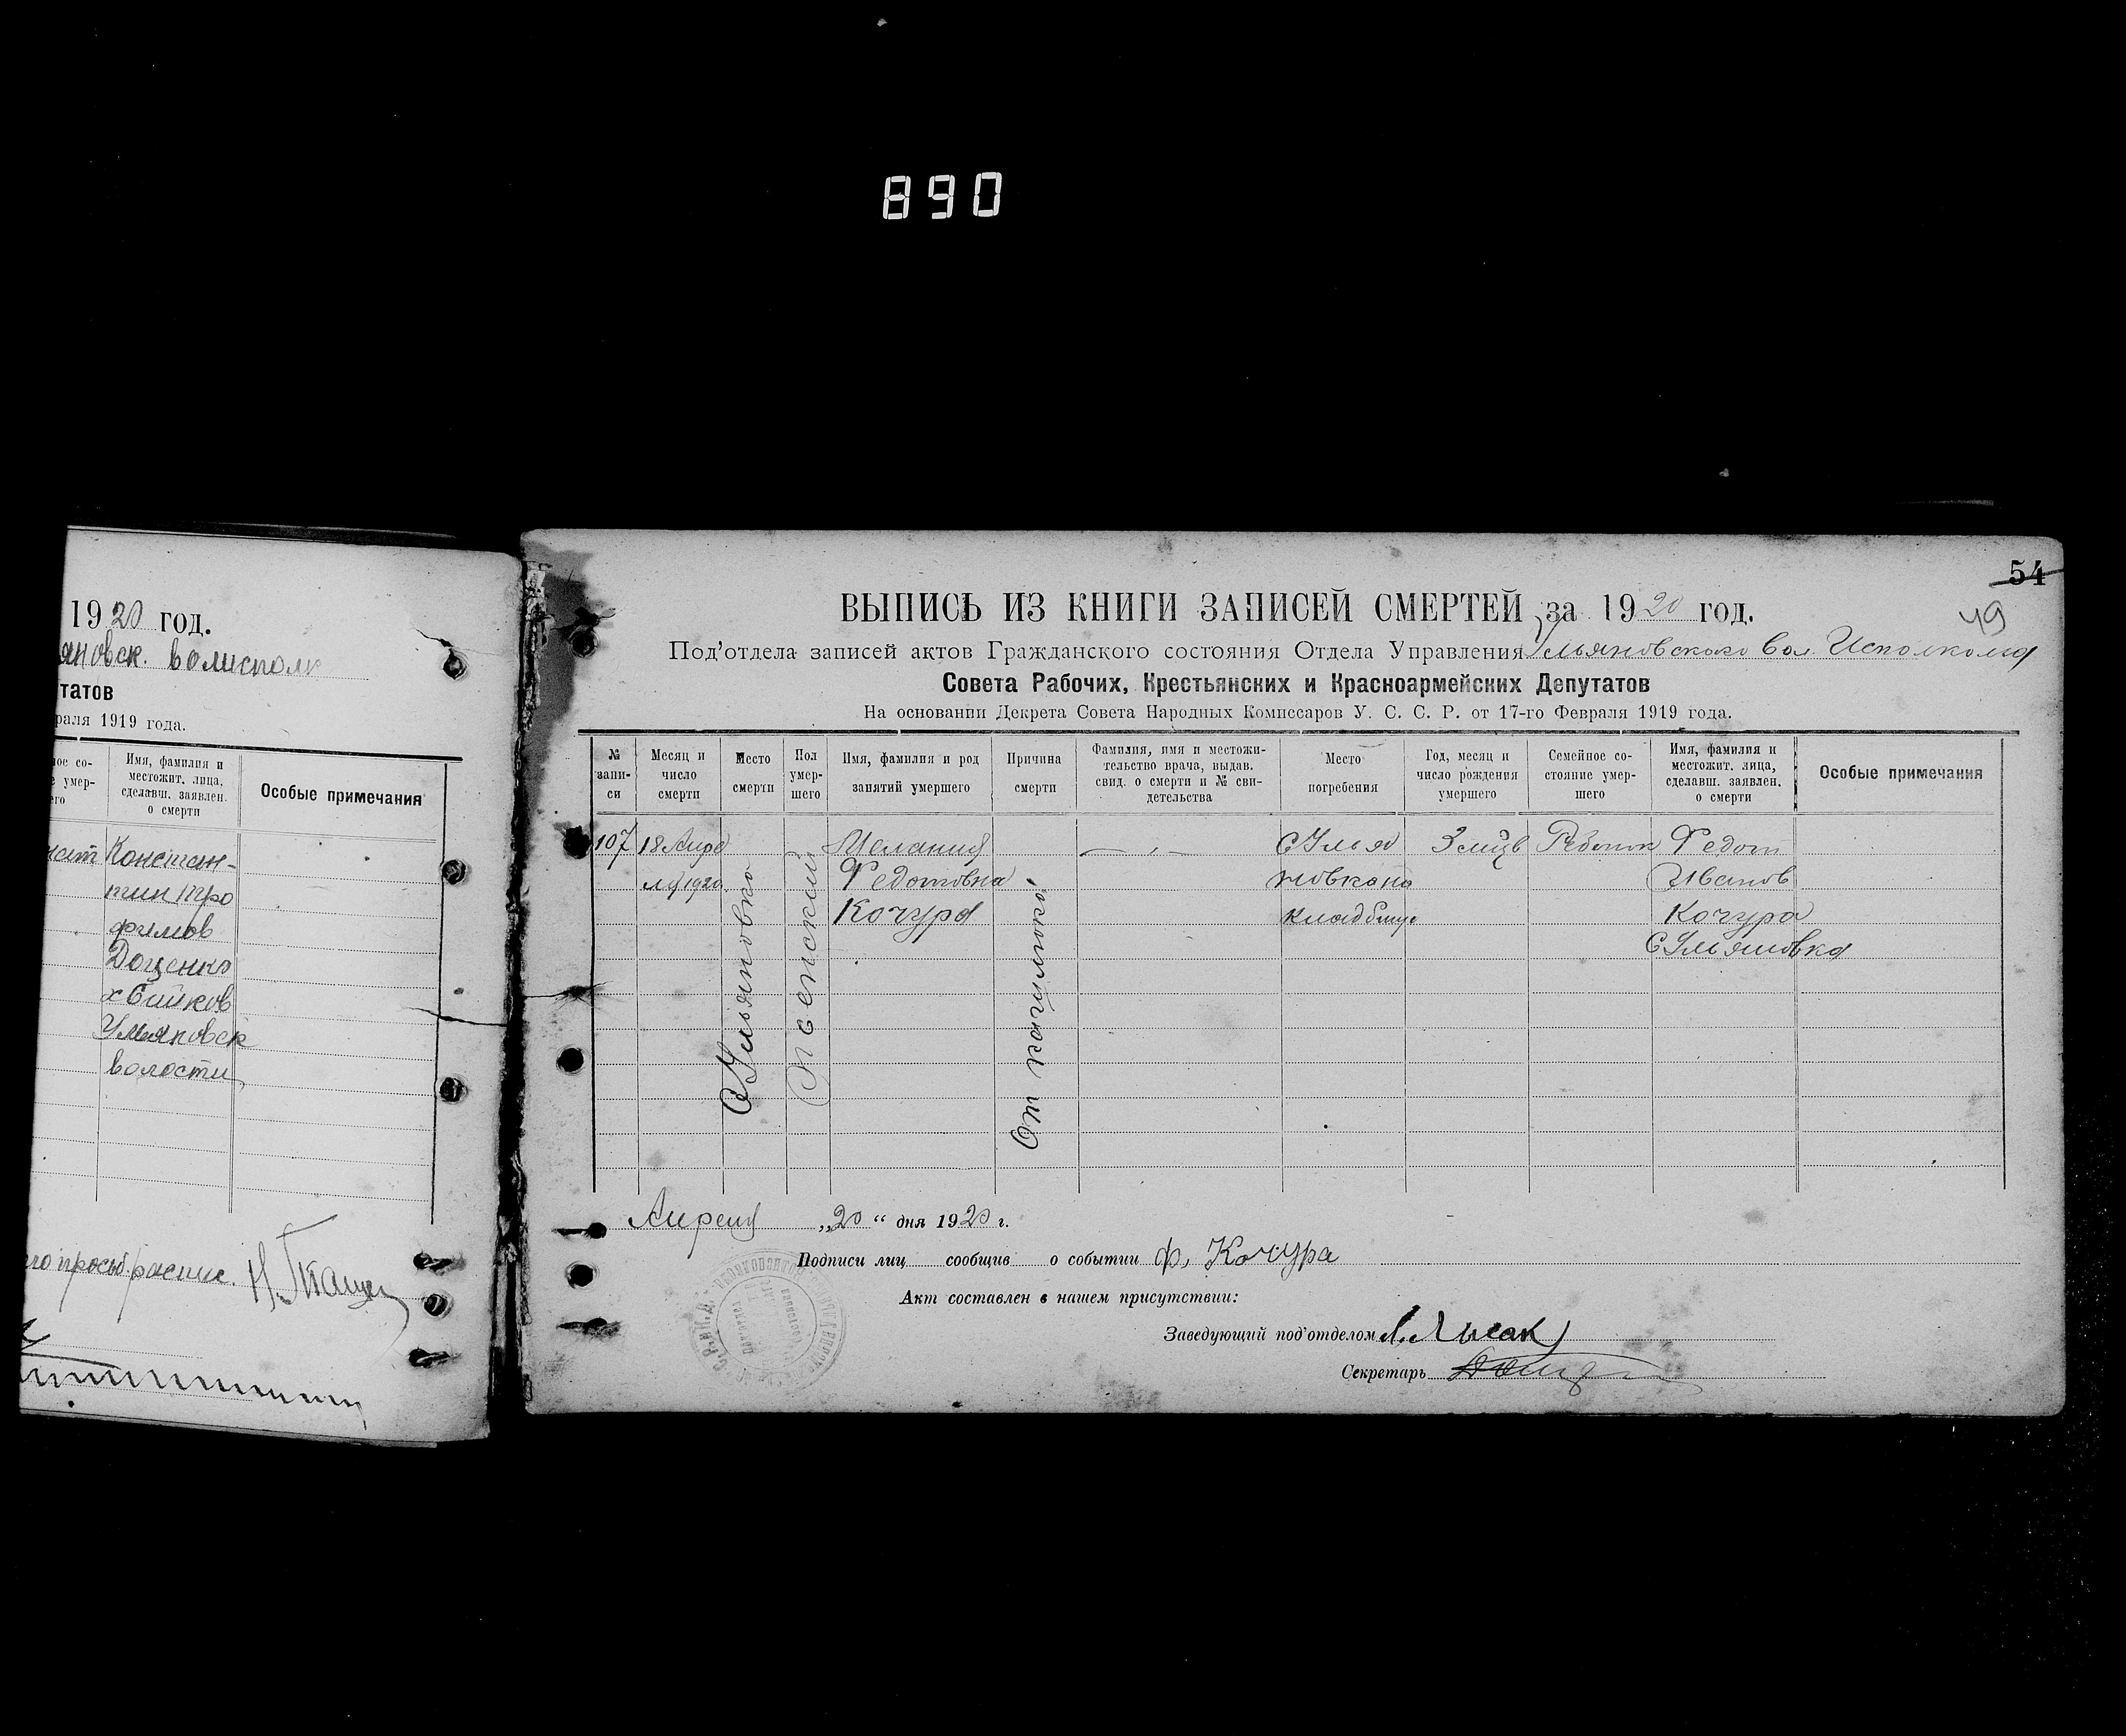 890
1920 год.
яновск. волисполк
татов
раля 1919 года.
ое со-
умер-
его
Имя, фамилия и
местожит. лица,
сделавш. заявлен.
о смерти
Особые примечания
Констан-
тин Тро
фимов
Доценко
х Бийков
Ульяновск
волости
распис.
54
49
ВЫПИСЬ ИЗ КНИГИ ЗАПИСЕЙ СМЕРТЕЙ за 1920 год.
Под'отдела записей актов Гражданского состояния Отдела Управления Ульяновского Вол. Исполкома
Совета Рабочих, Крестьянских и Красноармейских Депутатов
На основании Декрета Совета Народных Комиссаров У. С. С. Р. от 17-го Февраля 1919 года.
№ запи-си
Месяц и число смерти
Место смерти
Пол умер-шего
Имя, фамилия и род занятий умершего
Причина смерти
Фамилия, имя и местожи-тельство врача, выдав. свид. о смерти и № сви-детельства
Место погребения
Год, месяц и число рождения умершего
Семейное со-стояние умер-шего
Имя, фамилия и местожит. лица, сделавш. заявлен. о смерти
Особые примечания
107 18 Апре Мелания С Улья 3 мцв Ребенок Федот
ля 1920 Федотовна новка на Иванов
Кочура кладбище Кочура
С Ульяновка
С Ульяновка
Женский
От кашлюка
Апреля „20“ дня 1920 г.
Подписи лиц сообщив о событии Ф. Кочура
Акт составлен в нашем присутствии:
Заведующий под'отделом Лысак
Секретарь